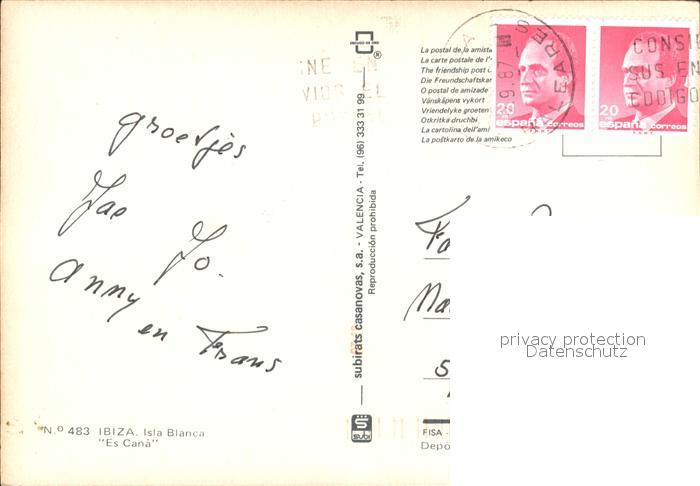 groetjes
Jac Jo.
Anny en Frans
N.º 483 IBIZA. Isla Blanca
"Es Caná"
subirats casanovas, s.a. - VALENCIA - Tel. (96) 333 31 99
Reproducción prohibida
SUBI
®
La postal de la amista
La carte postale de l'
The friendship post
Die Freundschaftskar
O postal de amizade
Vänskåpens vykort
Vriendelyke groeten
Otkritka druchbi
La cartolina dell'ami
La poŝtkarto de la amikeco
20 20
españa correos españa correos
9.87
EARES
CONSI
SUS EN
CODIGO
Fa
Na
S
FISA -
Depó
privacy protection
Datenschutz